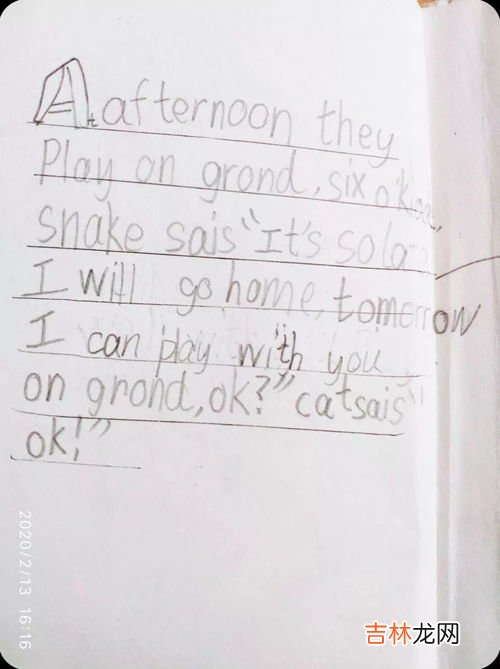 At afternoon they
Play on grond, six o'kloc,
snake sais "It's so la
I will go home, tomorrow
I can play with you
on grond, ok?" cat sais"
ok!"
2020/2/13 16:16
吉林龙网